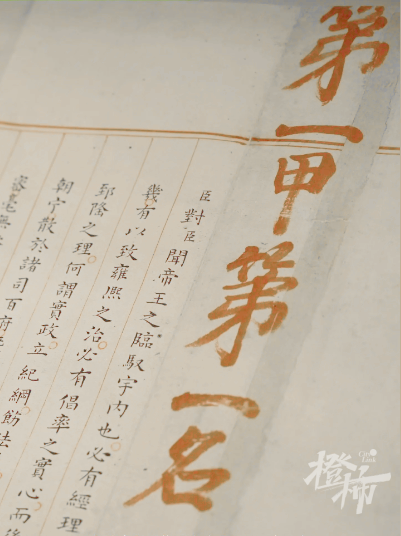 第一甲第一名
臣對臣聞帝王之臨馭宇內也必有經理
幾有以致雍熙之治必有倡率之實心而後
郅隆之理何謂實政立紀綱飭法
朝宁散於諸司百府
毫無
橙柿